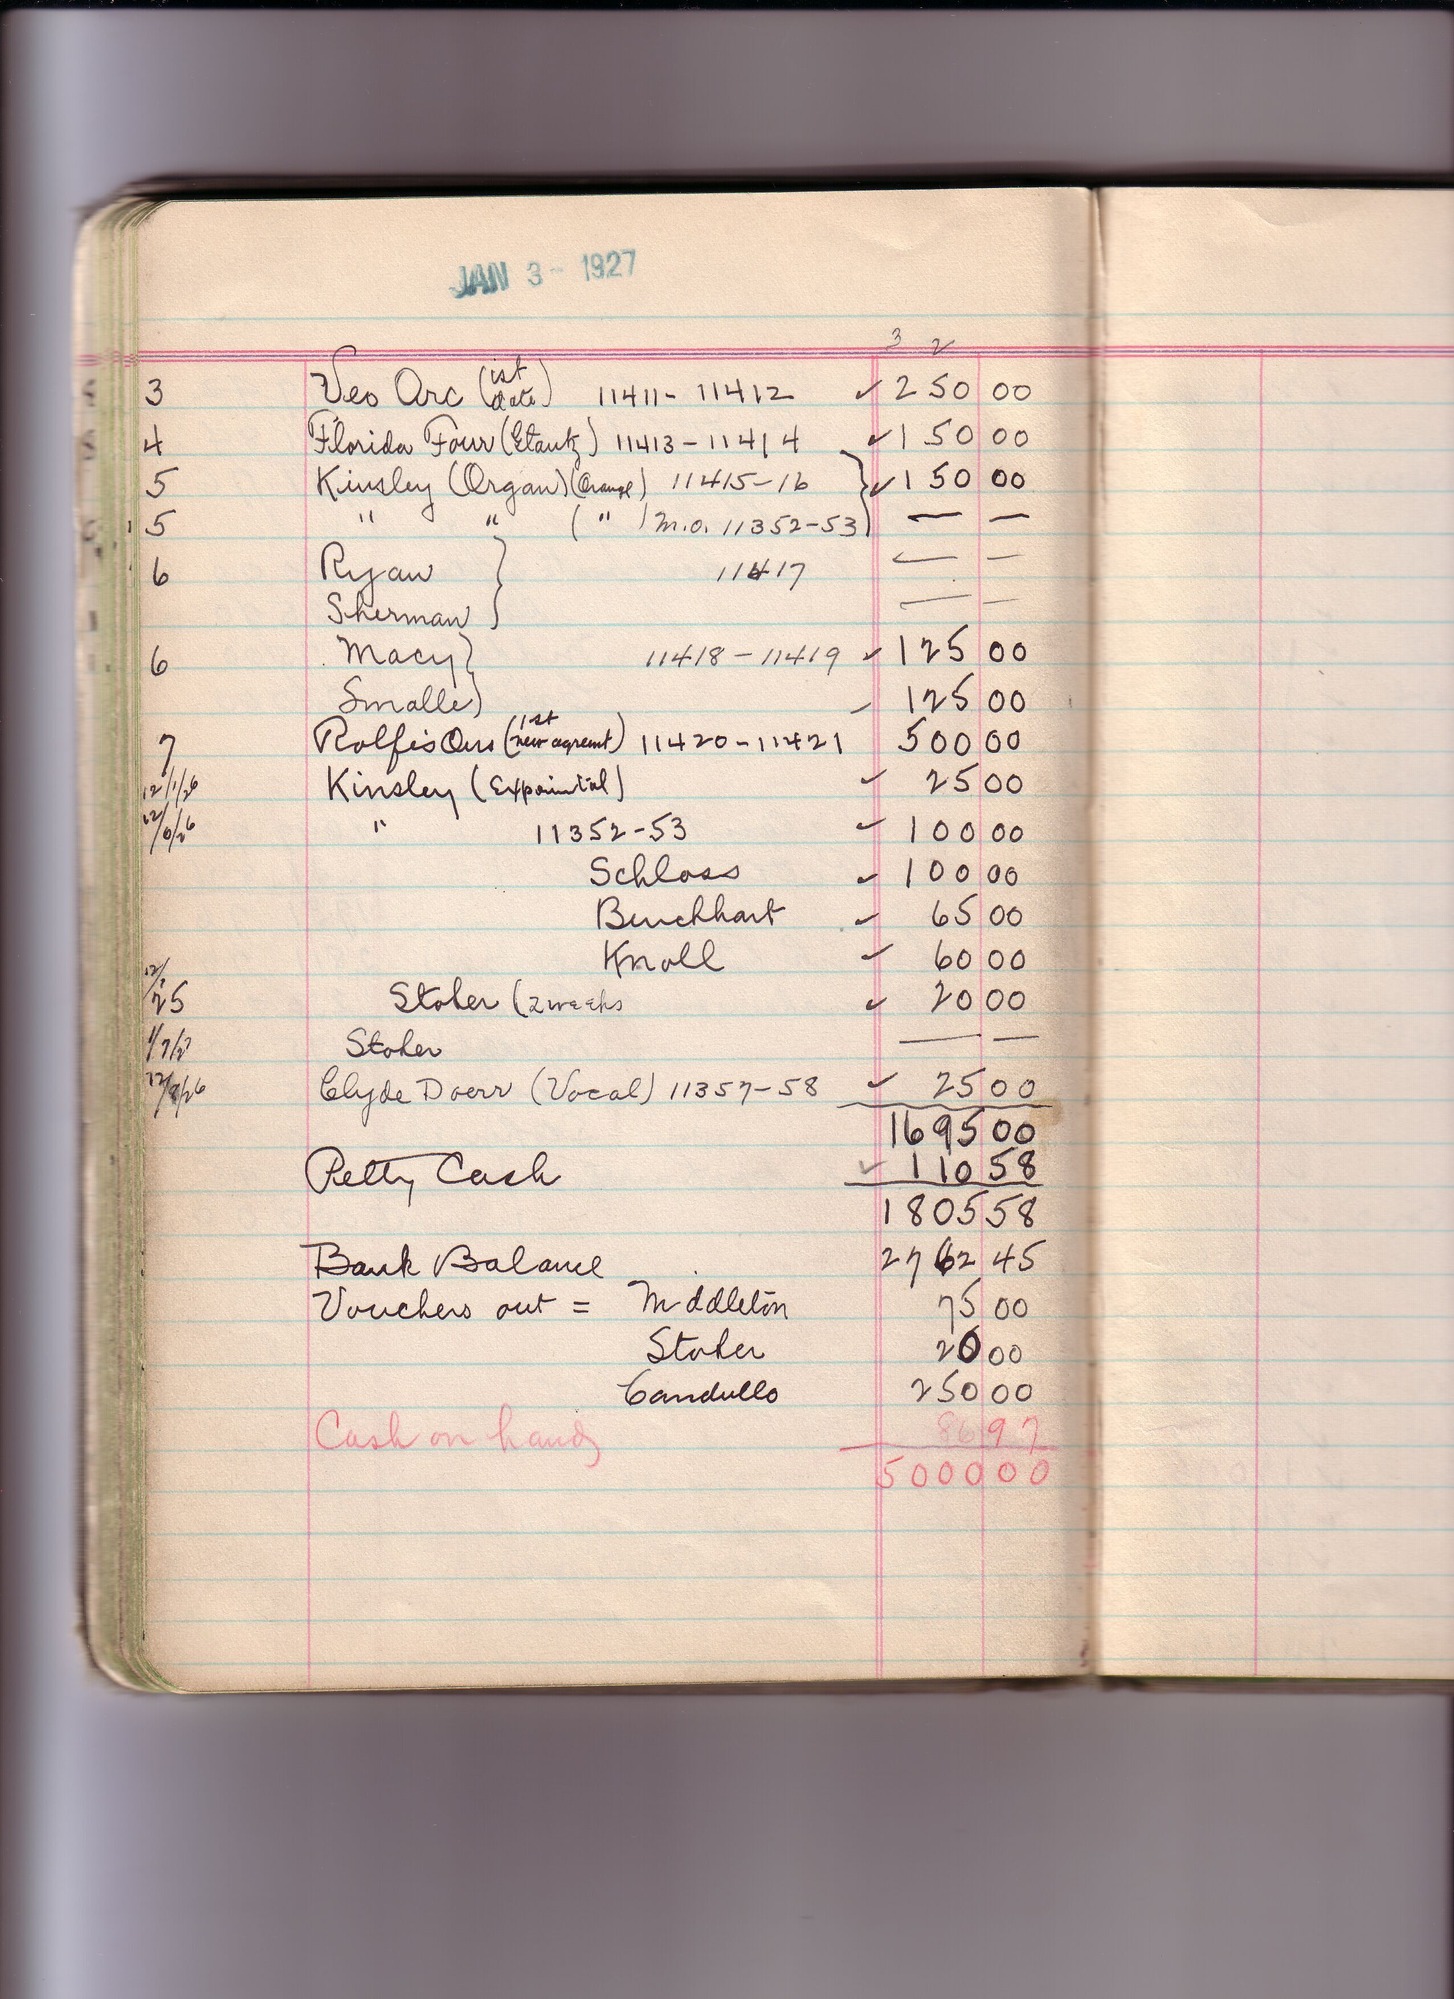 JAN 3 - 1927
3 2
3 Veo Arc (1st date) 11411 - 11412 ✓ 250 00
4 Florida Four ( ) 11413 - 11414 ✓ 150 00
5 Kinsley (Organ) (Orange) 11415-16 ✓ 150 00
5 " " ( " ) m.o. 11352-53 — —
6 Ryan } 11417 — —
Sherman } — —
6 Macy } 11418 - 11419 ✓ 125 00
Smalle } ✓ 125 00
7 Rolfis (1st new agremt) 11420 - 11421 500 00
12/1/26 Kinsley ( ) ✓ 25 00
12/ /26 " 11352-53 ✓ 100 00
Schloss ✓ 100 00
Burchhart ✓ 65 00
Knoll ✓ 60 00
12/25 Stoker (2 weeks ✓ 20 00
1/7/27 Stoker — —
12/ /26 Clyde Doerr (Vocal) 11357-58 ✓ 25 00
1695 00
Petty Cash ✓ 110 58
1805 58
Bank Balance 2762 45
Vouchers out = Middleton 75 00
Stoker 20 00
Candullo 250 00
Cash on hand 86 97
5000 00